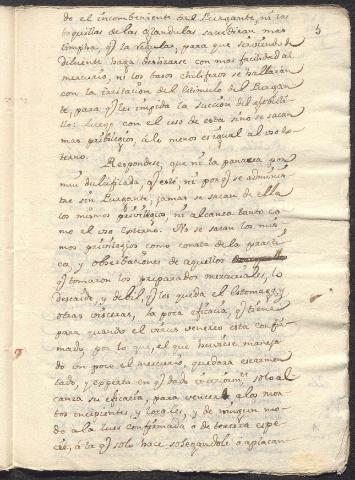 do el incombeniente del Purgante, ni las
boquillas de las glandulas saecretiran mas
limpha, q̃ la regular, para que sirviendo de
diluente haga deslizarse con mas facilidad al
mercurio, ni los basos chiliferos se hallarán
con la irritacion del stimulo del Purgan
te, para q̃ les impida la succion del
luego con el uso de esta sino se sacan
mas privilegios, à lo menos es igual al uso ex-
terno.
Respondese, que ni la panacea por
mui dulcificada, q̃ esté, ni por q̃ se adminis
tre sin Purgante, jamas se sacan de ella
los mismos privilegios, ni alcanza tanto co
mo el uso externo. No se sacan los mis
mos privilegios como consta de la practi
ca, y observaciones de aquellos
q̃ tomaron los preparados mercuriales, lo
descaido, y debil, q̃ les queda el estomago, y
otras visceras, la poca eficacia, q̃ tiene
para quando el virus venereo esta confir
mado, por lo que, el que huviese maneja
do un poco el mercurio, quedara escarmen
tado, y experto en q̃ dado solo al
canza su eficacia, para vencer à los mor
bos incipientes, y locales, y de ningun mo
do à la lues confirmada ò de tercera espe
cie, à la q̃ solo hace sosegandole ò aplacan
5